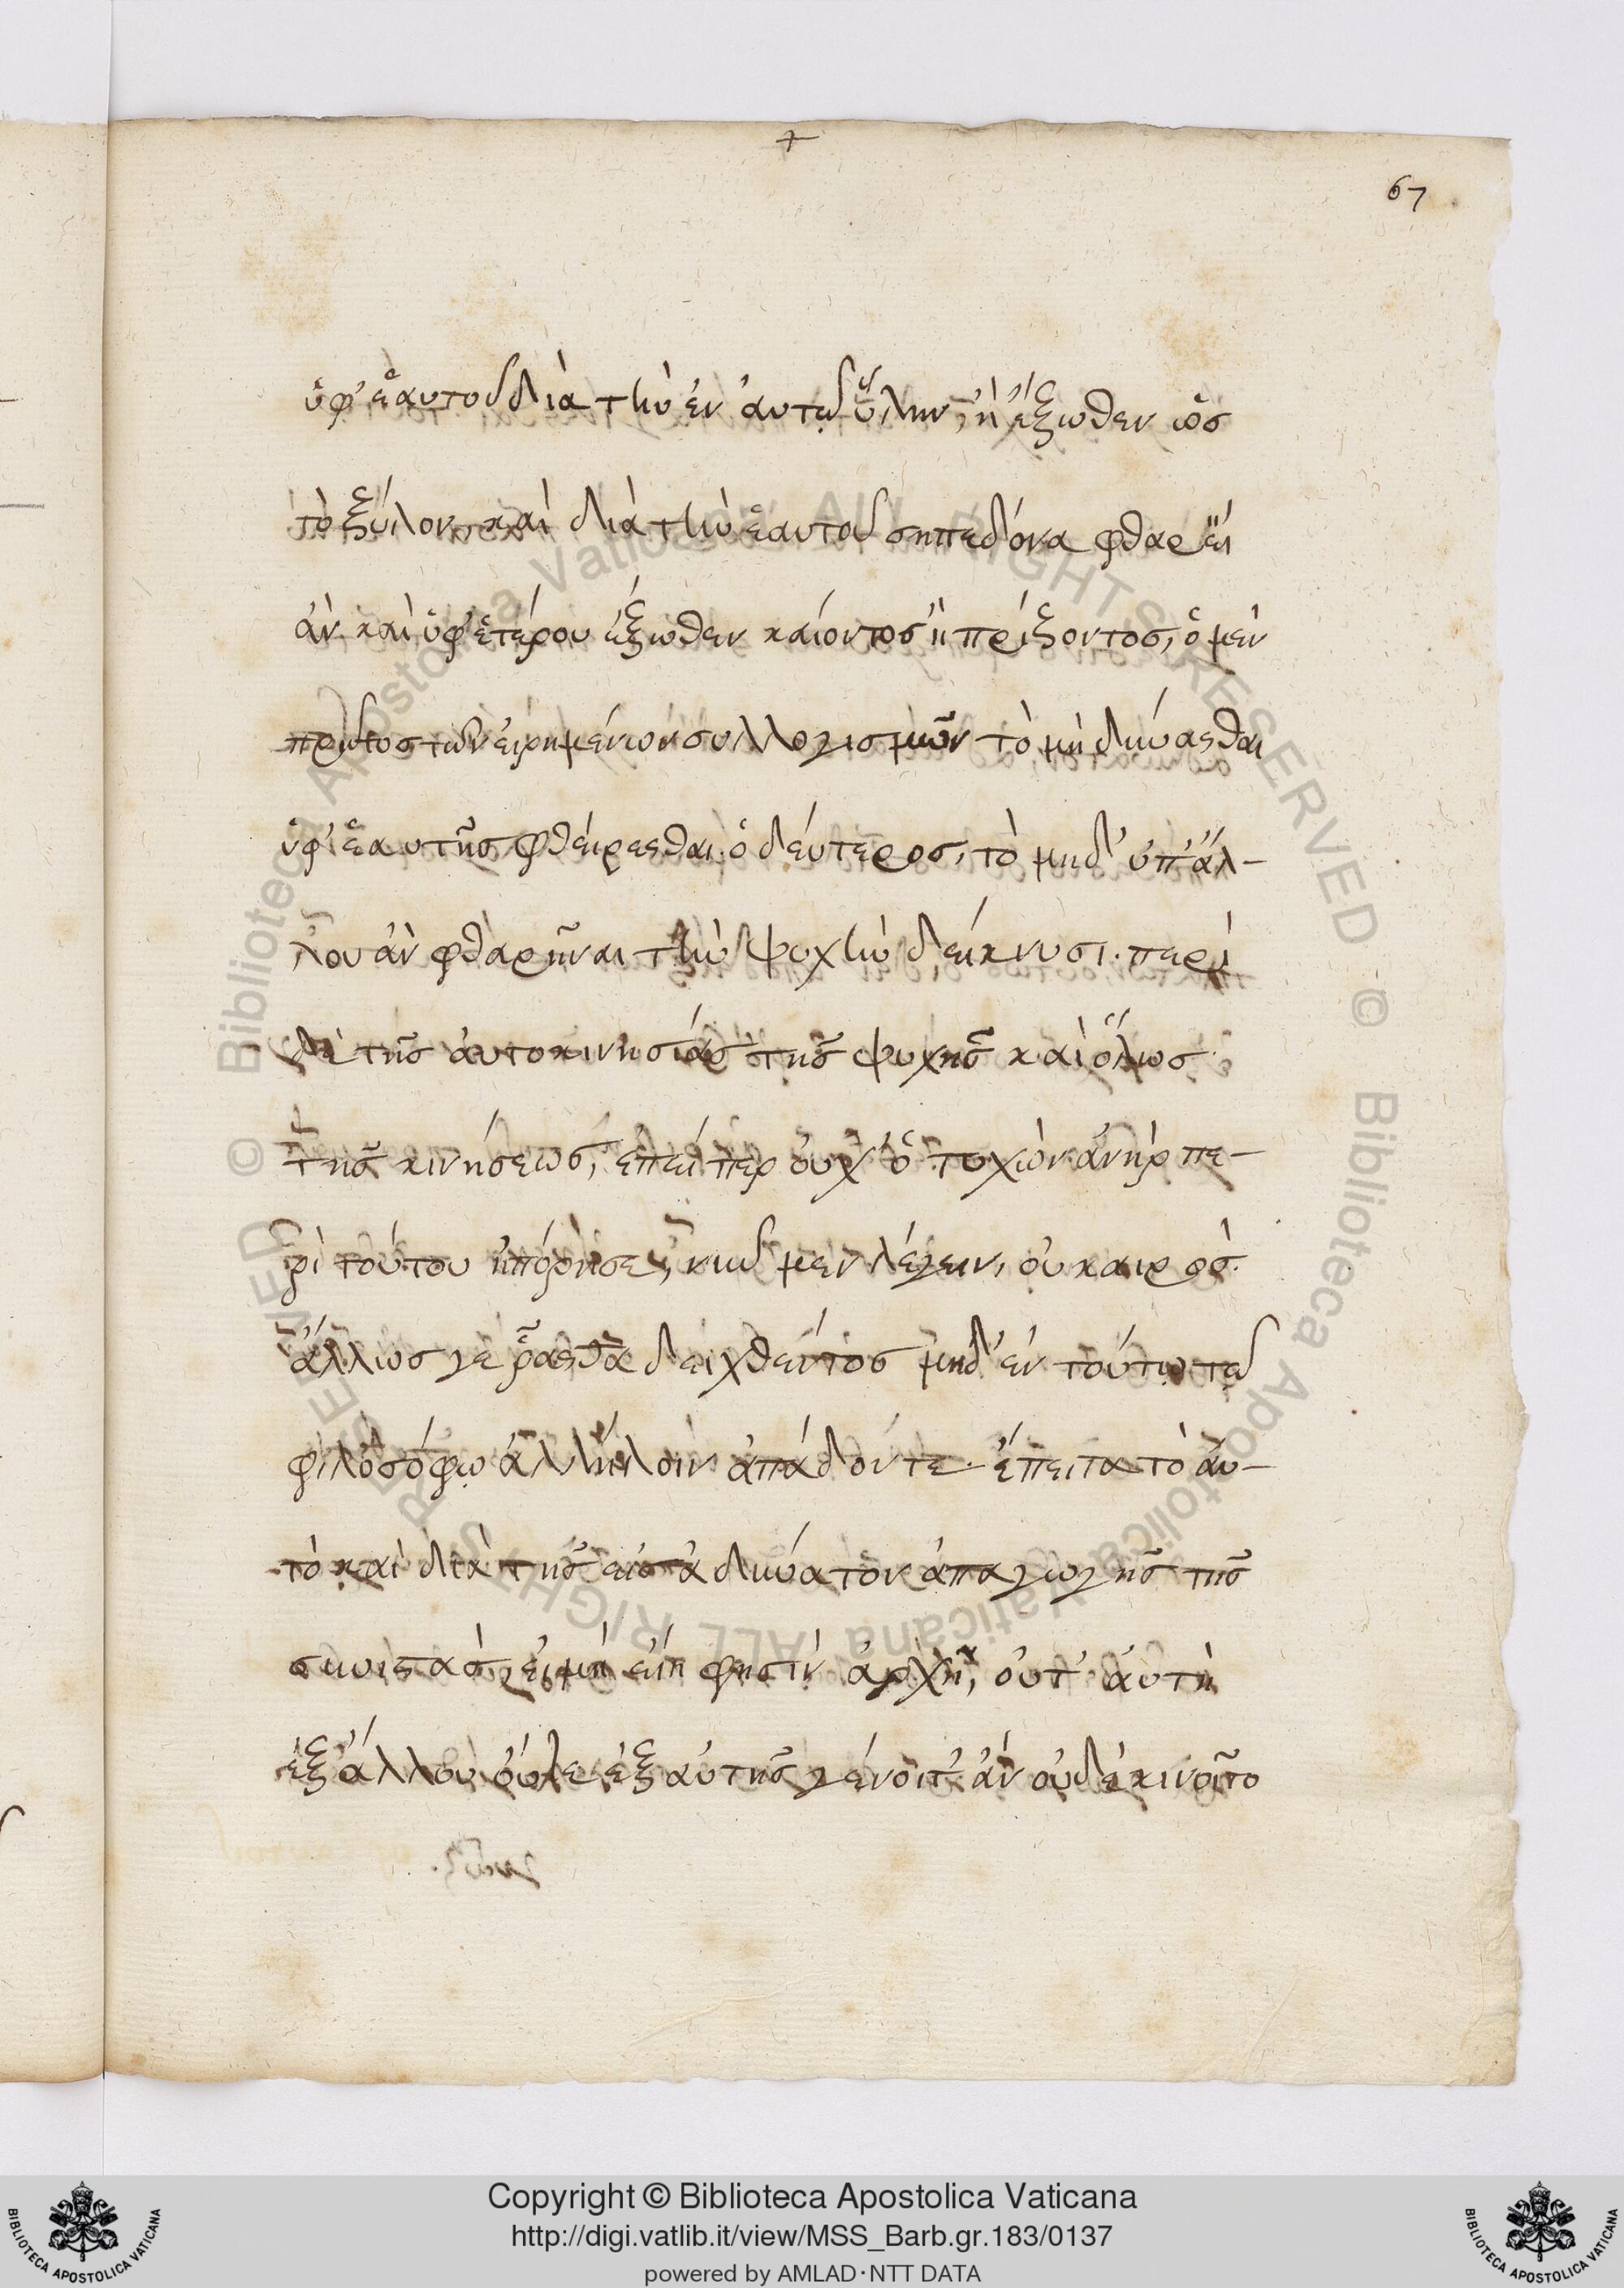 67
ὑφ' ἑαυτοῦ διὰ τὴν ἐν αυτῷ ὕλην, ἢ ἔξωθεν ὡς
τὸ ξύλον καὶ διὰ τὴν ἑαυτοῦ σηπεδόνα φθαρείη
ἂν καὶ ὑφ' ἑτέρου ἔξωθεν καίοντος ἢ πρίζοντος, ὁ μὲν
πρῶτος τῶν εἰρημένων συλλογισμῶν τὸ μὴ δύνασθαι
ὑφ' ἑαυτῆς φθείρεσθαι. ὁ δεύτερος, τὸ μηδ' ὑπ' ἄλ-
λου ἂν φθαρῆναι τὴν ψυχὴν δείκνυσι. περὶ
δὲ τῆς αὐτοκινησίας τῆς ψυχῆς καὶ ὅλως
τῆς κινήσεως, ἐπείπερ οὐχ' ὁ τυχὼν ἀνὴρ πε-
ρὶ τούτου ἠπόρησε, νῦν μὲν λέγειν, οὐ καιρός.
ἄλλως γε δειχθέντος μηδ' ἐν τούτῳ τῷ
φιλοσόφω ἀλλήλοιν ἀπάδοντε. ἔπειτα τὸ αὐ-
τὸ καὶ διὰ τῆς εἰς ἀδύνατον ἀπαγωγῆς τῆς
εἰ μὴ εἴη φησὶν ἀρχὴ, οὔτ' αὐτὴ
ἐξ ἄλλου οὔτε ἐξ αὐτῆς γένοιτ' ἂν οὐδὲ κινοῖτο
Copyright © Biblioteca Apostolica Vaticana
http://digi.vatlib.it/view/MSS_Barb.gr.183/0137
powered by AMLAD·NTT DATA
BIBLIOTECA APOSTOLICA VATICANA
BIBLIOTECA APOSTOLICA VATICANA
© Biblioteca Apostolica Vaticana ALL RIGHTS RESERVED
© Biblioteca Apostolica Vaticana ALL RIGHTS RESERVED